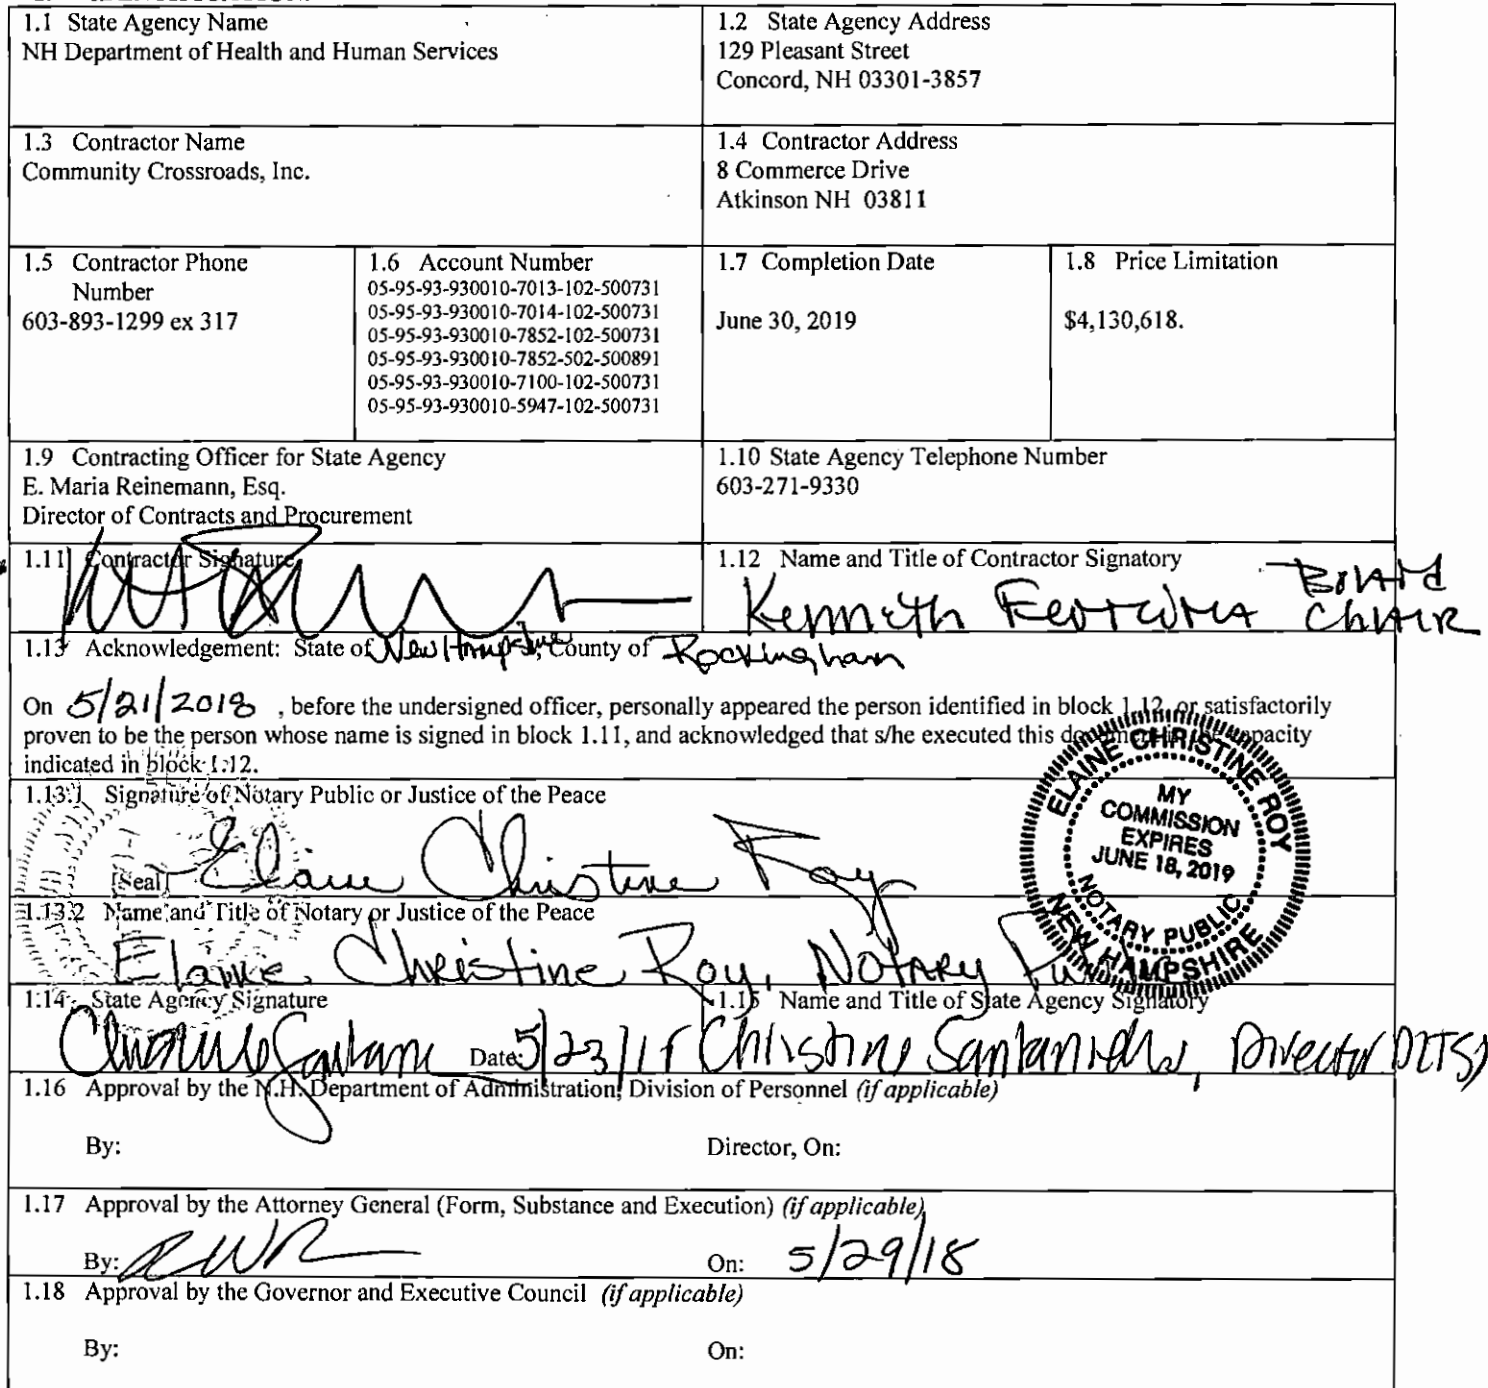 1.1 State Agency Name
NH Department of Health and Human Services
1.2 State Agency Address
129 Pleasant Street
Concord, NH 03301-3857
1.3 Contractor Name
Community Crossroads, Inc.
1.4 Contractor Address
8 Commerce Drive
Atkinson NH 03811
1.5 Contractor Phone
Number
603-893-1299 ex 317
1.6 Account Number
05-95-93-930010-7013-102-500731
05-95-93-930010-7014-102-500731
05-95-93-930010-7852-102-500731
05-95-93-930010-7852-502-500891
05-95-93-930010-7100-102-500731
05-95-93-930010-5947-102-500731
1.7 Completion Date
June 30, 2019
1.8 Price Limitation
$4,130,618.
1.9 Contracting Officer for State Agency
E. Maria Reinemann, Esq.
Director of Contracts and Procurement
1.10 State Agency Telephone Number
603-271-9330
1.11 Contractor Signature
1.12 Name and Title of Contractor Signatory
Kenneth Board
Chair
1.13 Acknowledgement: State of New Hampshire, County of Rockingham
On 5/21/2018 , before the undersigned officer, personally appeared the person identified in block 1.12, or satisfactorily
proven to be the person whose name is signed in block 1.11, and acknowledged that s/he executed this document in the capacity
indicated in block 1.12.
1.13.1 Signature of Notary Public or Justice of the Peace
[Seal] Elaine Christine Roy
ELAINE CHRISTINE ROY
MY
COMMISSION
EXPIRES
JUNE 18, 2019
NOTARY PUBLIC
NEW HAMPSHIRE
1.13.2 Name and Title of Notary or Justice of the Peace
Elaine Christine Roy, Notary Public
1.14 State Agency Signature
Date: 5/23/18
1.15 Name and Title of State Agency Signatory
Christine Santaniello, Director
1.16 Approval by the N.H. Department of Administration, Division of Personnel (if applicable)
By:
Director, On:
1.17 Approval by the Attorney General (Form, Substance and Execution) (if applicable)
By:
On: 5/29/18
1.18 Approval by the Governor and Executive Council (if applicable)
By:
On: